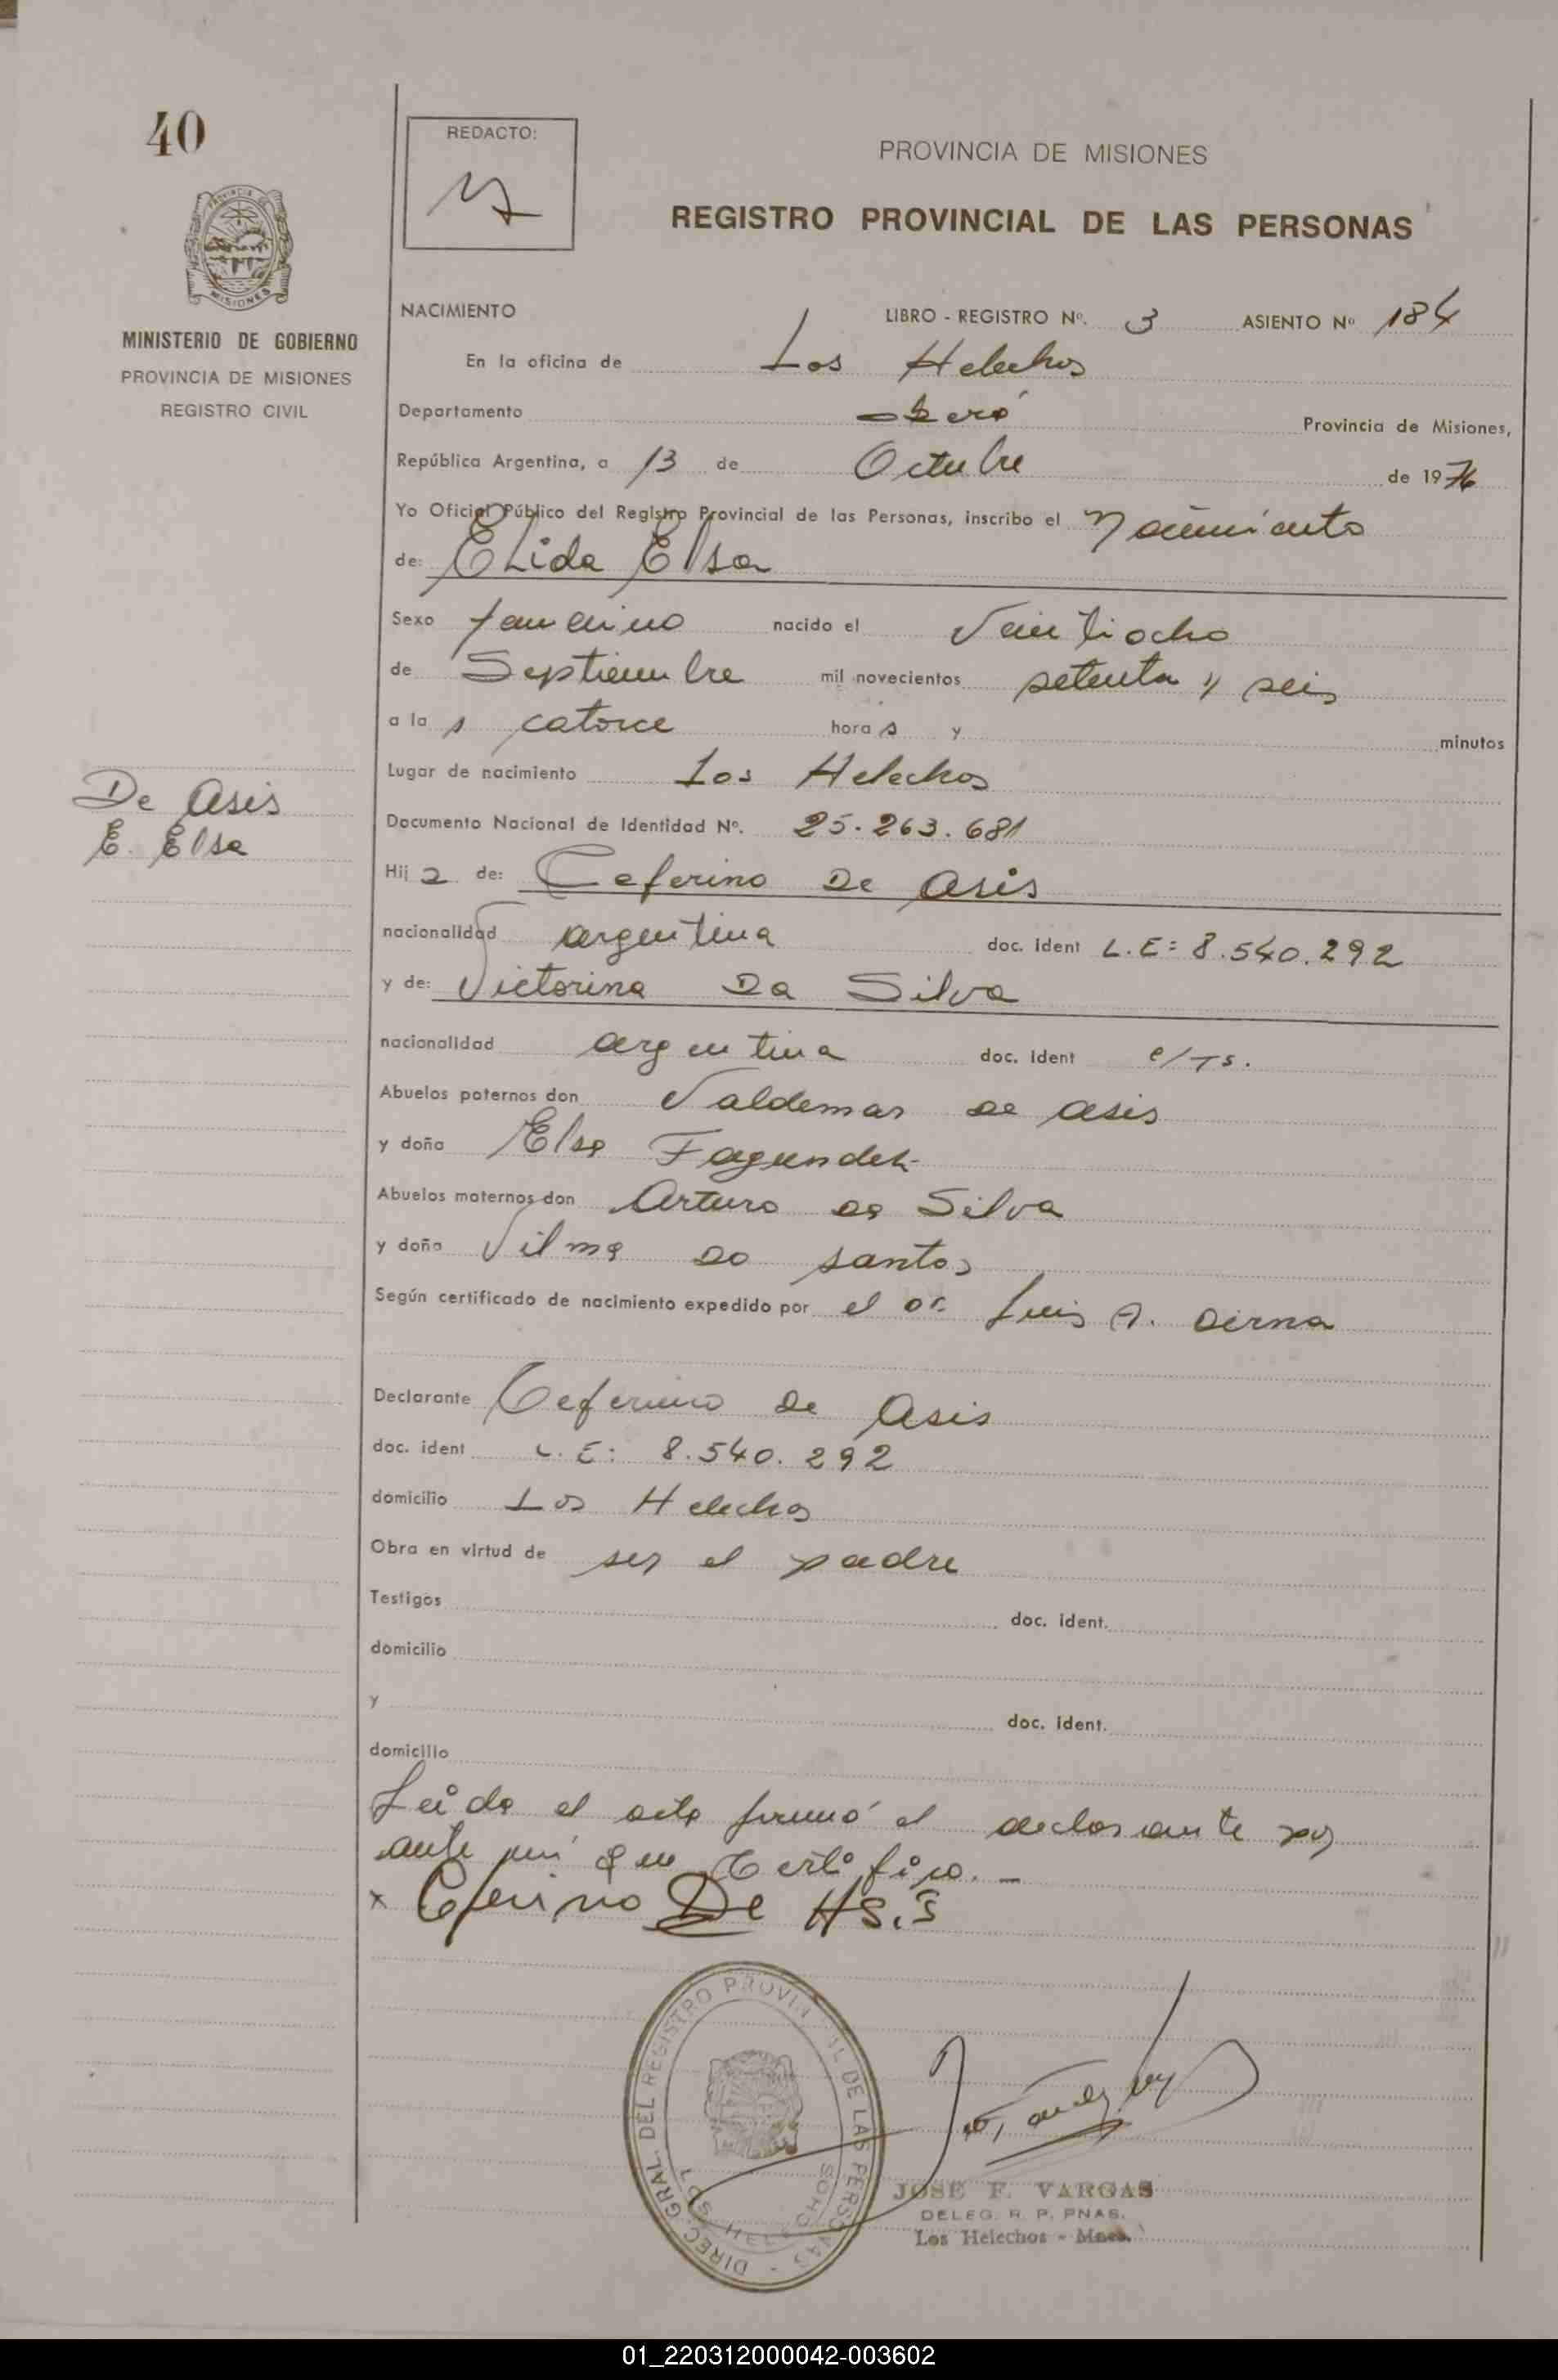 40
REDACTO:
PROVINCIA DE MISIONES
REGISTRO PROVINCIAL DE LAS PERSONAS
MISIONES
MINISTERIO DE GOBIERNO
PROVINCIA DE MISIONES
REGISTRO CIVIL
NACIMIENTO LIBRO - REGISTRO Nº. 3 ASIENTO Nº 184
En la oficina de Los Helechos
Departamento Oberá Provincia de Misiones,
República Argentina, a 13 de Octubre de 1976
Yo Oficial Público del Registro Provincial de las Personas, inscribo el nacimiento
de: Elida Elsa
Sexo femenino nacido el Veintiocho
de Septiembre mil novecientos setenta y seis
a la s catorce hora s y minutos
Lugar de nacimiento Los Helechos
De Asis
E. Elsa
Documento Nacional de Identidad Nº. 25.263.681
Hij a de: Ceferino De Asis
nacionalidad argentina doc. ident L.E: 8.540.292
y de: Victorina Da Silva
nacionalidad argentina doc. ident c/Ts.
Abuelos paternos don Valdemar de asis
y doña Elsa Fagundez
Abuelos maternos don Arturo da Silva
y doña Vilma do santos
Según certificado de nacimiento expedido por el Dr. Luis A. Derna
Declarante Ceferino de Asis
doc. ident L.E: 8.540.292
domicilio Los Helechos
Obra en virtud de ser el padre
Testigos doc. ident.
domicilio
y doc. ident.
domicilio
Leida el acta firmó el declarante por
ante mí que Certifico. -
x Cferino De AS.S
DIREC. GRAL. DEL REGISTRO PROVINCIAL DE LAS PERSONAS -
LOS HELECHOS
JOSE F. VARGAS
DELEG. R. P. PNAS.
Los Helechos - Mnes.
01_220312000042-003602